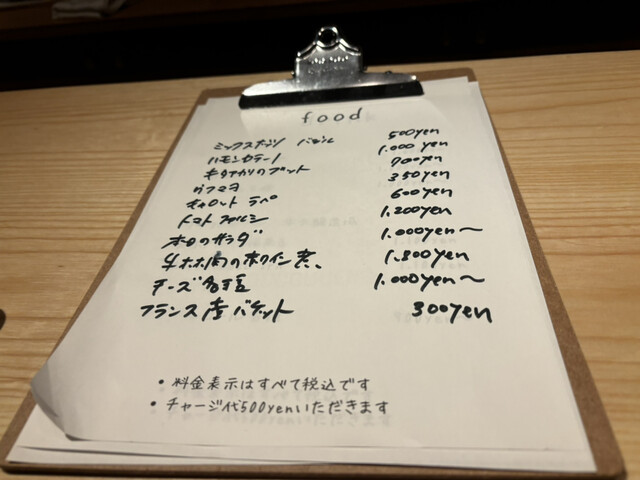 food
ミックスナッツ 500yen
ハモンセラーノ 1.000yen
キタアカリのフリット 700yen
ウフマヨ 350yen
キャロットラペ 600yen
トマトファルシ 1.200yen
本日のサラダ 1.000yen～
牛ホホ肉の赤ワイン煮 1.800yen
チーズ各種 1.000yen～
フランス産バケット 300yen
・料金表示はすべて税込です
・チャージ代500yenいただきます